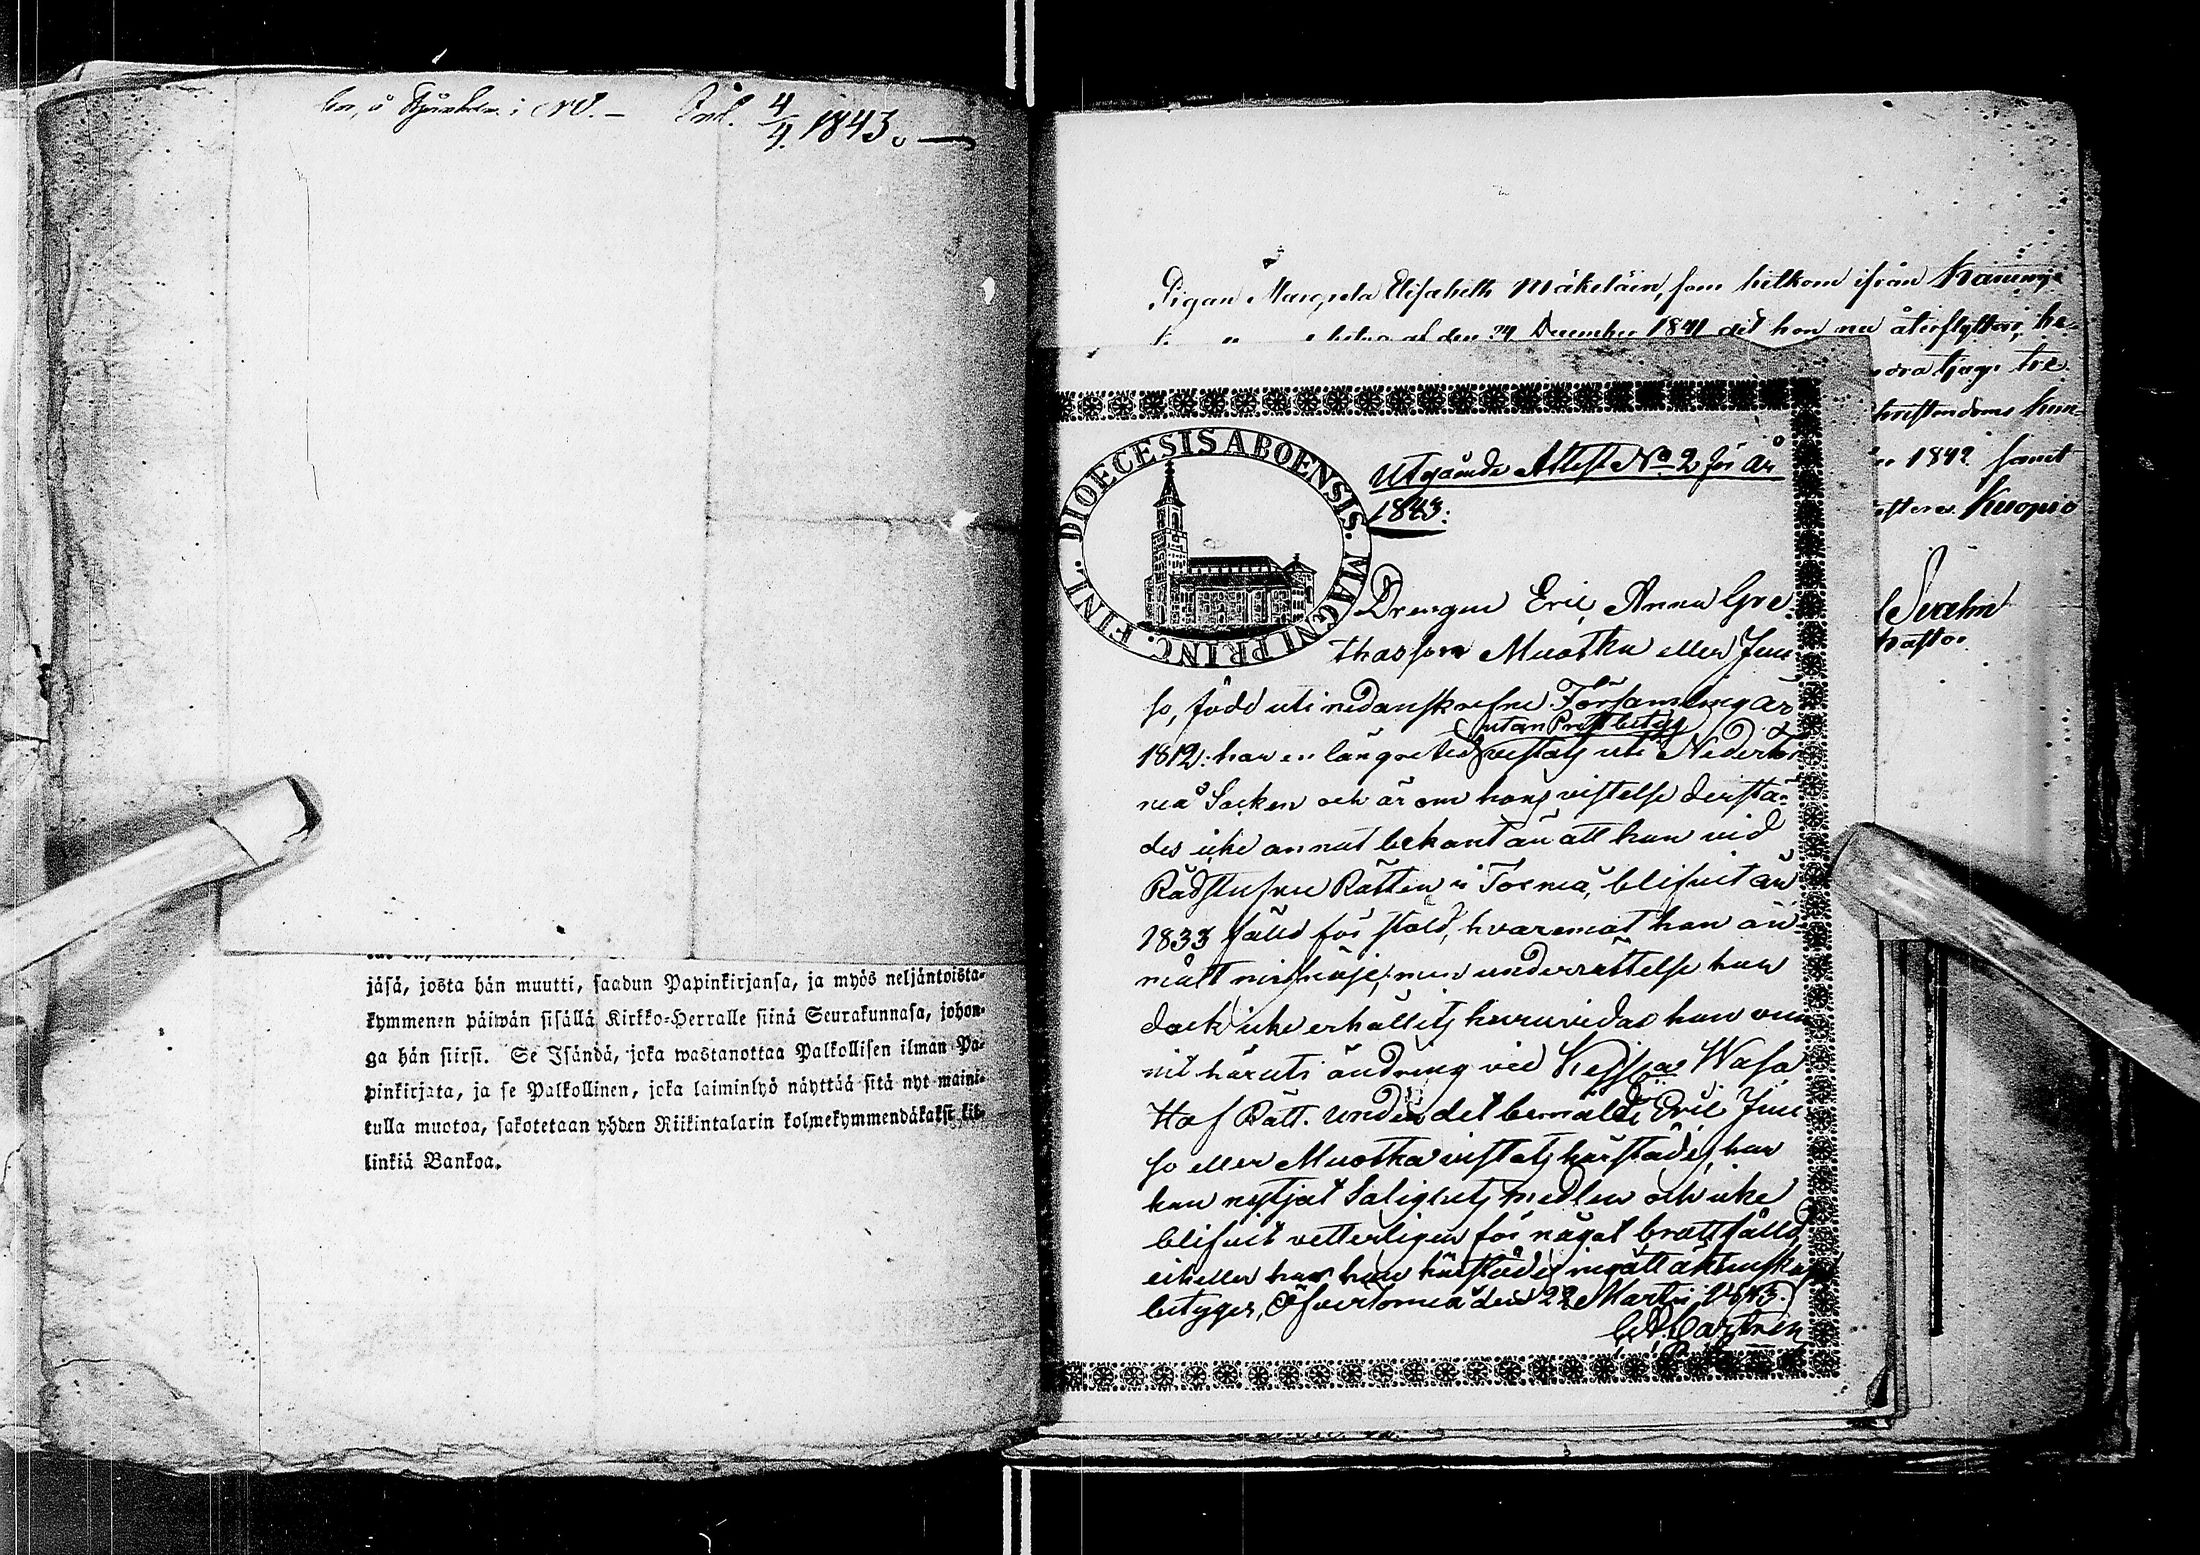 i NV. — Inl. 4/4. 1843. —
jäsä, josta hän muutti, saadun Papinkirjansa, ja myös neljäntoista-
kymmenen päiwän sisällä Kirkko-Herralle siinä Seurakunnasa, johon-
ga hän siirsi. Se Isändä, joka wastanottaa Palkollisen ilman Pa-
pinkirjata, ja se Palkollinen, joka laiminlyö näyttää sitä nyt maini-
tulla muotoa, sakotetaan yhden Riikintalarin kolmekymmendäkaksi kil-
linkiä Bankoa.
Pigan Margreta Elisabeth Mäkeläin, som hitkom ifrån
den 24 December 1841 dit hon nu återflyttar, be-
tjugu tre
christendoms kun-
1842 samt
Kuopio
Pastor.
DIOECESIS ABOENSIS. MAGNI PRINC. FINL.
Utgående Attest No 2 för år
1843.
Drengen Eric Anna Gre-
thasson Muotka eller Juu
so, född uti nedanskrefne Församling år
utan Prestbetyg
1812. har en längre tid vistats uti Nedertor
neå Socken och är om hans vistelse derstä-
des icke annat bekant än att han vid
Rådstufvu Rätten i Torneå, blifvit år
1833 fälld för stöld, hvaremot han an
mält missnöje, men underrättelse har
dock icke erhållits huruvida han vun
nit häruti ändring vid Kejs:ae Wasa
Hof Rätt. Under det bemälde Eric Juu
so eller Muotka vistats härstädes, har
han nyttjat Salighets medlen och icke
blifvit vetterligen för något brott fälld,
ei heller har han härstädes ingått äktenskap
betygar, Öfvertorneå den 22 Martii 1843.